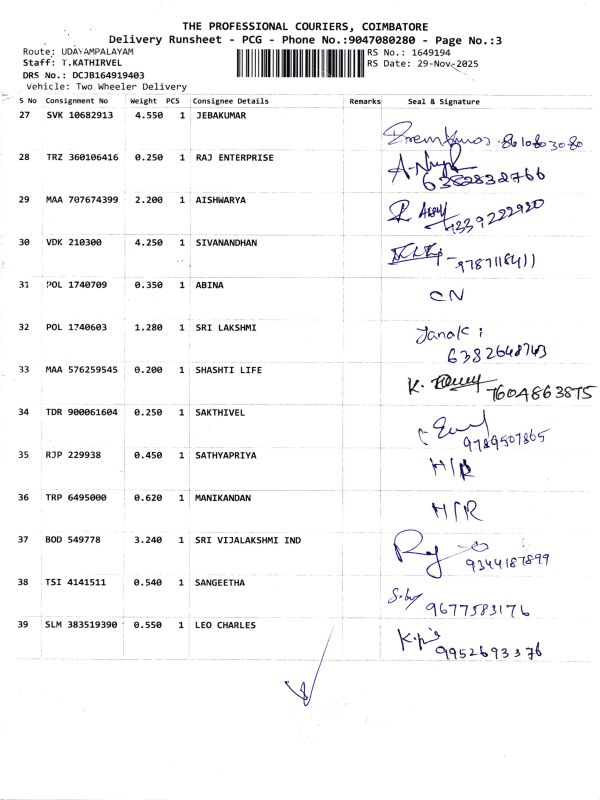 THE PROFESSIONAL COURIERS, COIMBATORE
Delivery Runsheet - PCG - Phone No.:9047080280 - Page No.:3
Route: UDAYAMPALAYAM RS No.: 1649194
Staff: T.KATHIRVEL RS Date: 29-Nov-2025
DRS No.: DCJB164919403
Vehicle: Two Wheeler Delivery
S No Consignment No Weight PCS Consignee Details Remarks Seal & Signature
27 SVK 10682913 4.550 1 JEBAKUMAR
8610803080
28 TRZ 360106416 0.250 1 RAJ ENTERPRISE
6382832766
29 MAA 707674399 2.200 1 AISHWARYA
30 VDK 210300 4.250 1 SIVANANDHAN
9787118411
31 POL 1740709 0.350 1 ABINA
CN
32 POL 1740603 1.280 1 SRI LAKSHMI
Janaki
6382648743
33 MAA 576259545 0.200 1 SHASHTI LIFE
K. 7604863875
34 TDR 900061604 0.250 1 SAKTHIVEL
9789507865
35 RJP 229938 0.450 1 SATHYAPRIYA
H/R
36 TRP 6495000 0.620 1 MANIKANDAN
H/R
37 BOD 549778 3.240 1 SRI VIJALAKSHMI IND
9344187899
38 TSI 4141511 0.540 1 SANGEETHA
9677583176
39 SLM 383519390 0.550 1 LEO CHARLES
9952693376